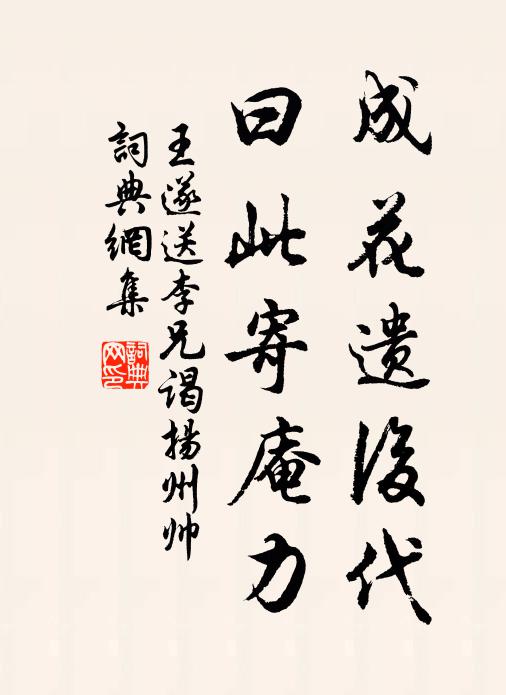 成花遗後代
曰此寄庵力
王遂送李兄谒揚州帅
詞典網集
詞典
网印